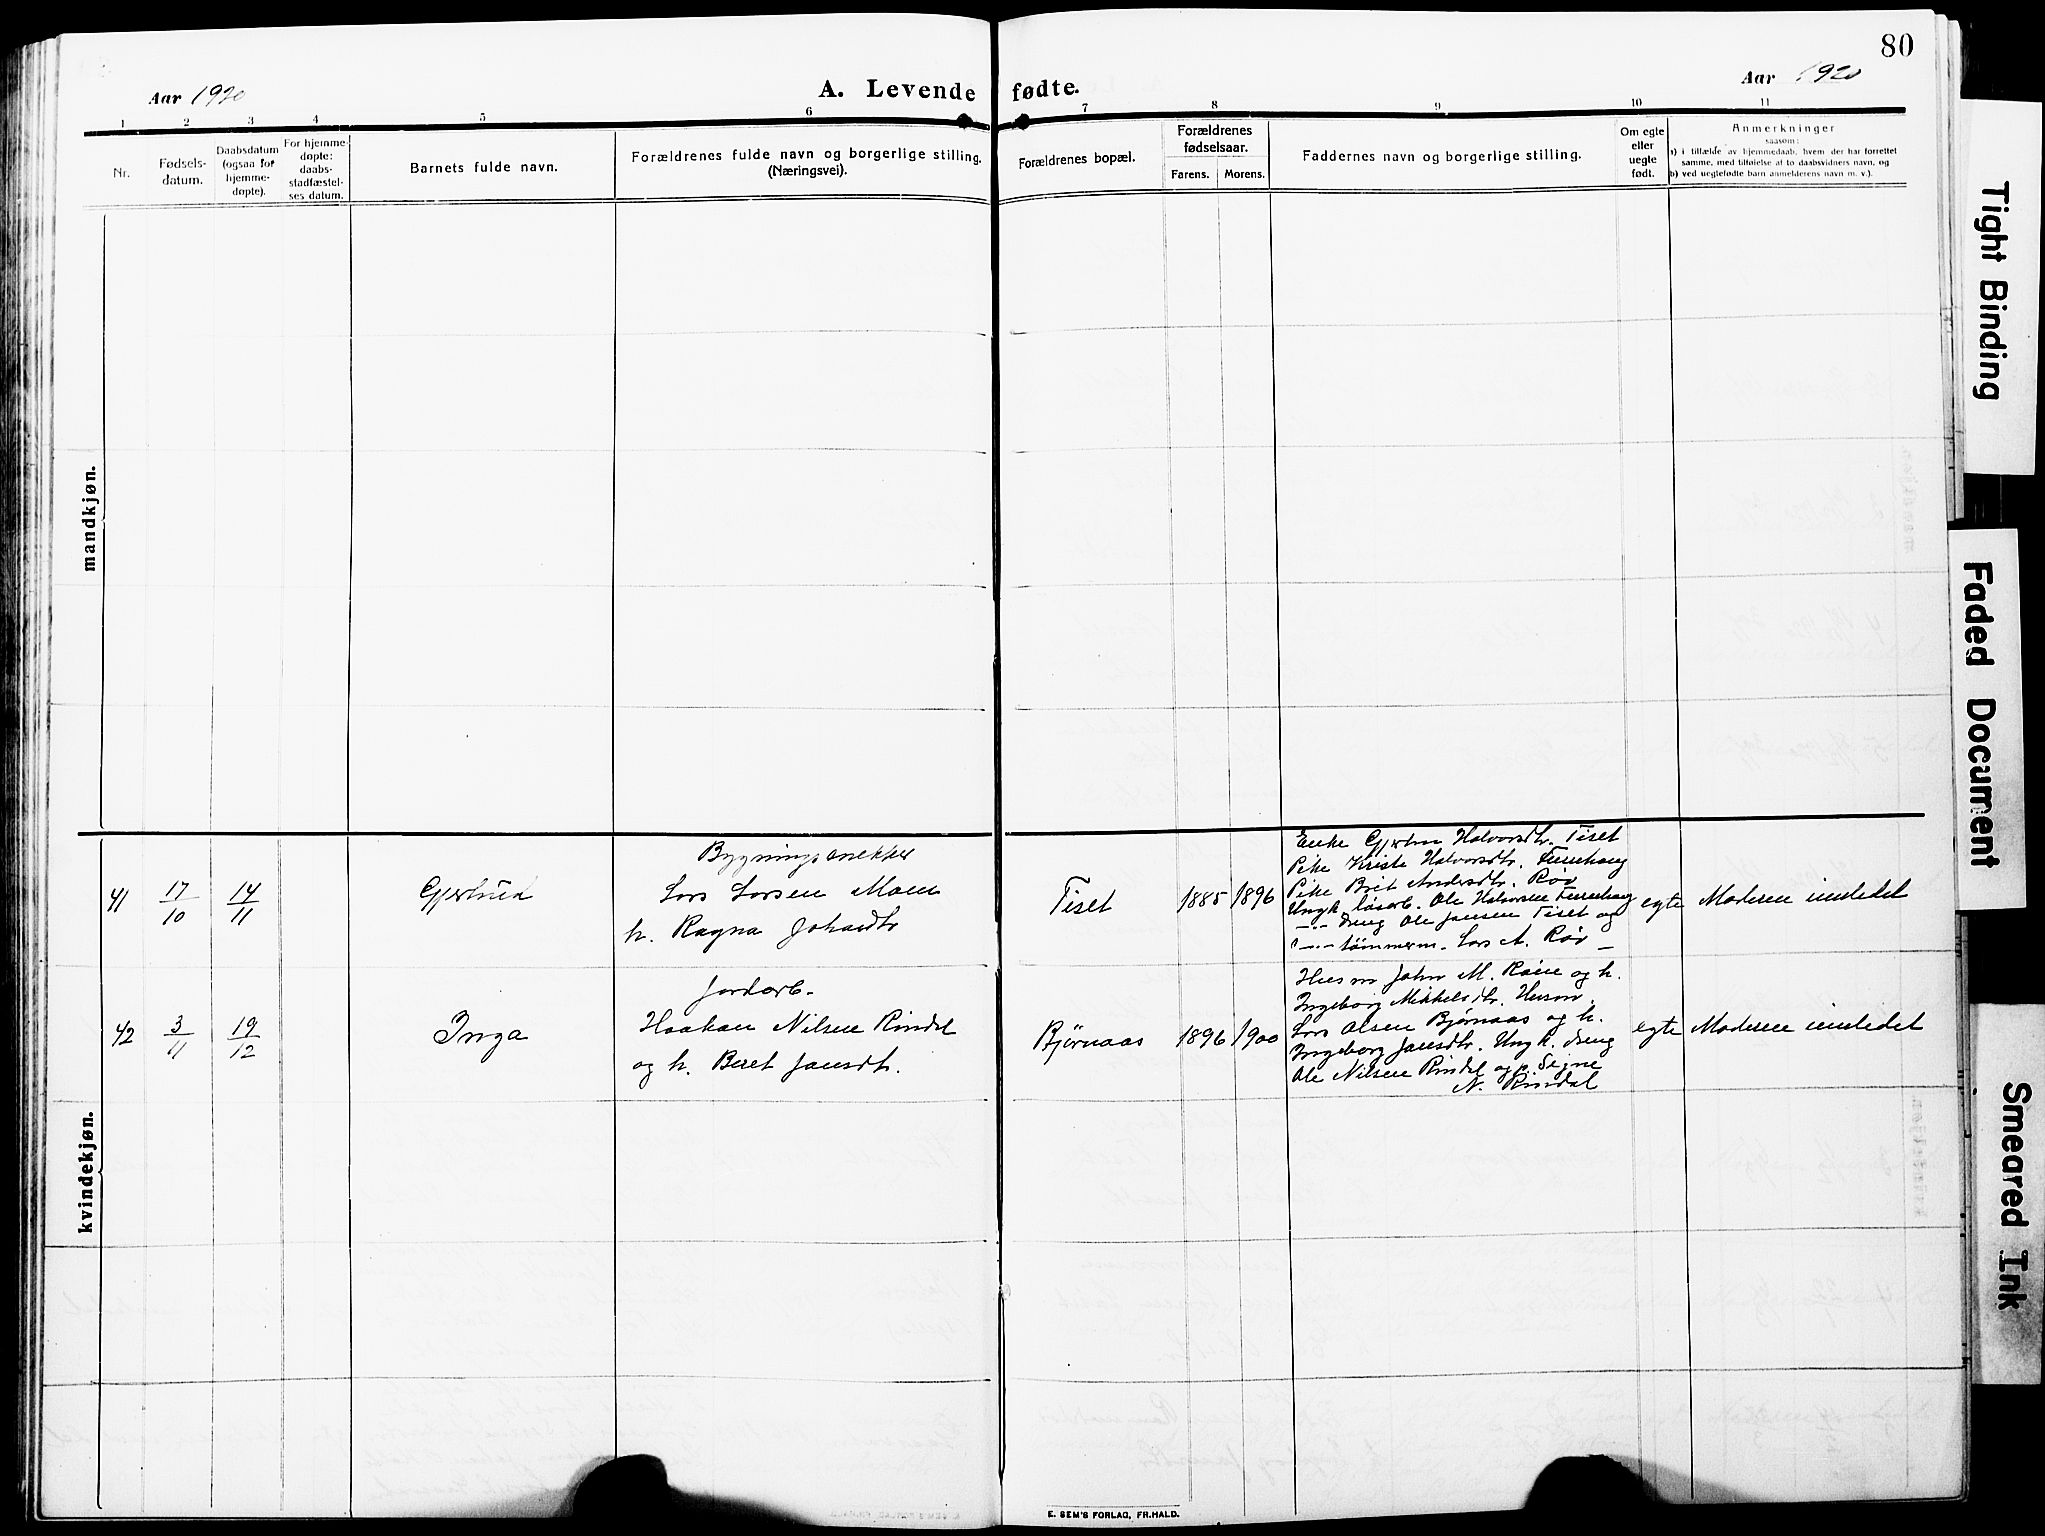 80
Aar 1920
A. Levende fødte.
Aar 1920
1 2 3 4 5 6 7 8 9 10 11
Nr.
Fødsels-
datum.
Daabsdatum
(ogsaa for
hjemme-
døpte).
For hjemme-
døpte:
daabs-
stadfæstel-
ses datum.
Barnets fulde navn.
Forældrenes fulde navn og borgerlige stilling.
(Næringsvei).
Forældrenes bopæl.
Forældrenes
fødselsaar.
Farens. Morens.
Faddernes navn og borgerlige stilling.
Om egte
eller
uegte
født.
Anmerkninger
saasom:
a) i tilfælde av hjemmedaab, hvem der har forrettet
samme, med tilføielse af to daabsvidners navn, og
b) ved uegtefødte barn anmelderens navn m. v.).
mandkjøn.
kvindekjøn.
41
17/10
14/11
Gjertrud
Bygningssnekker
Lars Larsen Moen
h. Ragna Johasdtr
Tiset
1885 1896
Enke Gjertru Halvorsdtr. Tiset
Pike Kristi Halvorsdtr.
Pike Brit Andersdtr. Røv
Ungk. løsarb. Ole Halvorsen
–··– dreng Ole Jansen Tiset og
–··– tømmerm. Lars A. Røv –
egte
Moderen innledet
42
3/11
19/12
Inga
Jordarb.
Haakon Nilsen Rindal
og h. Beret Jansdtr.
Bjørnaas
1896 1900
Husm John M. Røen og h.
Ingeborg Mikkelsdtr. Husm.
Lars Olsen Bjørnaas og h.
Ingeborg Jansdtr. Ungk. dreng
Ole Nilsen Rindal og p. Signe
N. Rindal
egte
Moderen innledet
E. SEM'S FORLAG, FR.HALD.
Tight Binding
Faded Document
Smeared Ink